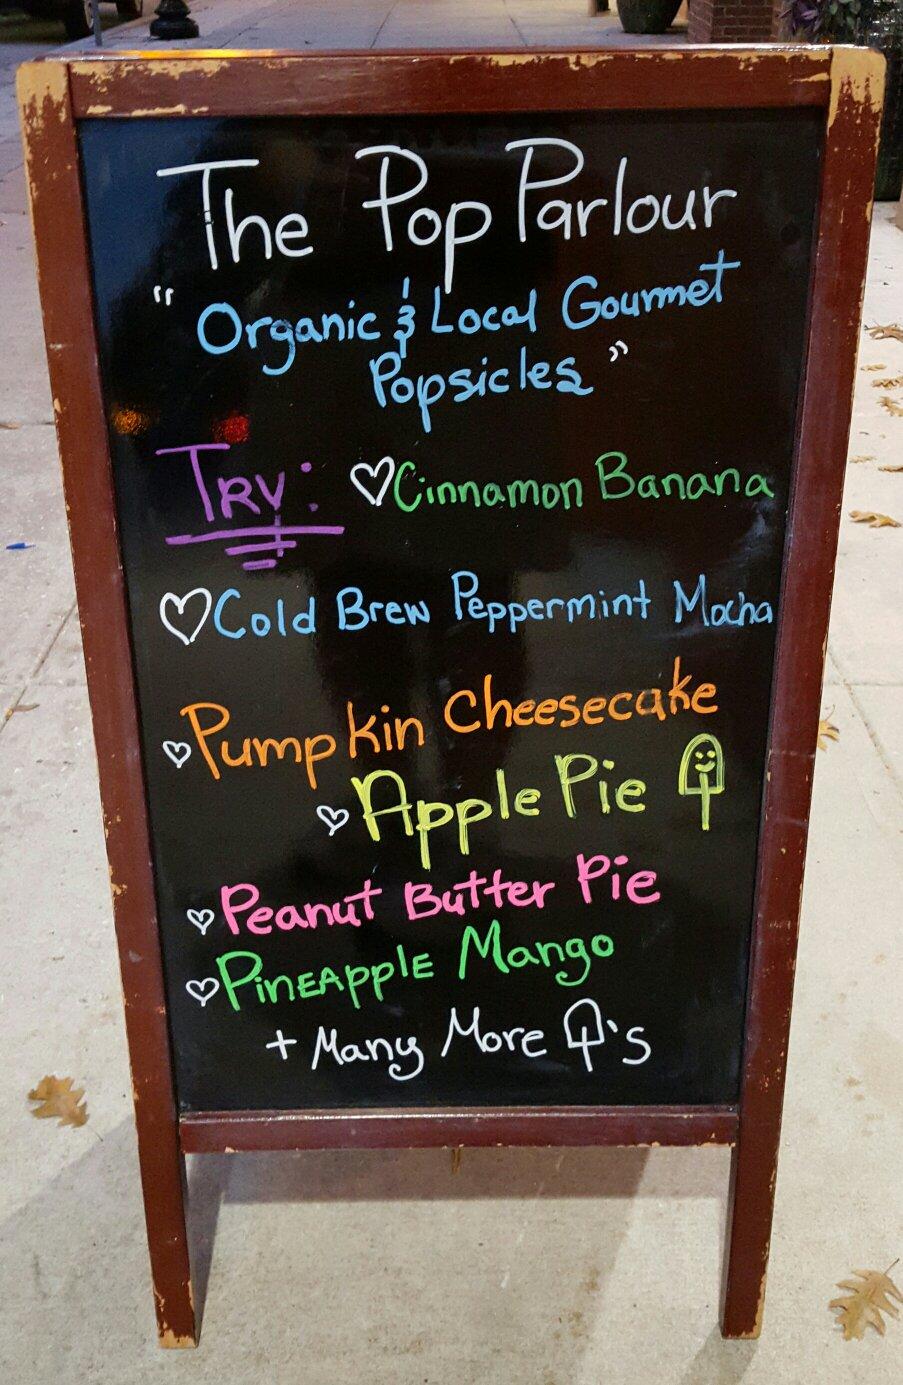 The Pop Parlour
" Organic & Local Gourmet
Popsicles "
TRY: Cinnamon Banana
Cold Brew Peppermint Mocha
Pumpkin Cheesecake
Apple Pie
Peanut Butter Pie
PINEAPPlE Mango
+ Many More 's